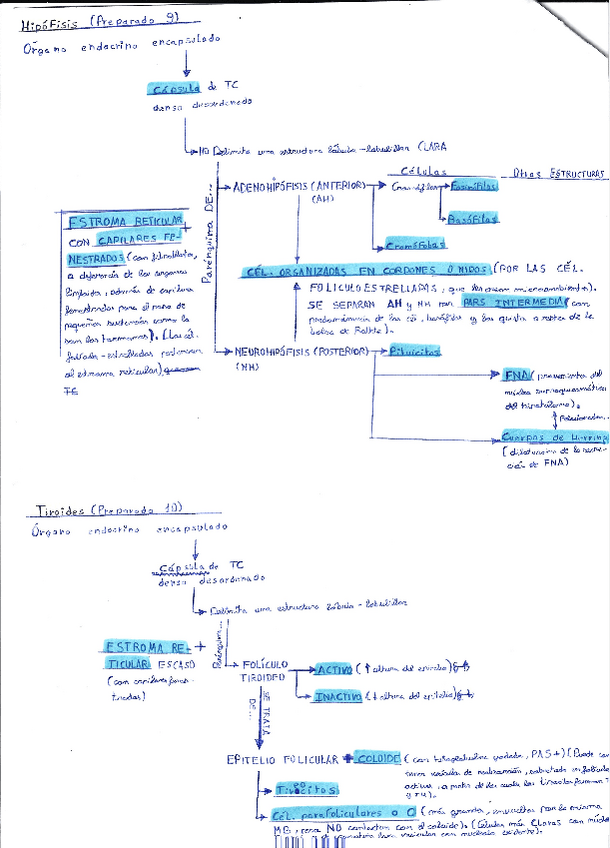 Hipófisis (Preparado 9)
Órgano endocrino encapsulado
Cápsula de TC
densa desordenado
Delimita una estructura lóbulo-lobulillar CLARA
Parénquima DE...
Células
Otras ESTRUCTURAS
ADENOHIPÓFISIS (ANTERIOR)
(AH)
Cromófilas
Eosinófilas
Basófilas
Cromófobas
ESTROMA RETICULAR +
CON CAPILARES FE-
NESTRADOS (con fibroblastos,
a diferencia de los órganos
linfoides, además de capilares
fenestrados para el paso de
pequeñas sustancias como lo
son las hormonas). (Las cél.
folículo-estrelladas pertenecen
al estroma reticular)
CÉL. ORGANIZADAS EN CORDONES O NIDOS (POR LAS CÉL.
FOLICULOESTRELLADAS, que les crean microambientes).
SE SEPARAN AH y NH con PARS INTERMEDIA (con
predominancia de las cél. basófilas y los quistes o restos de la
bolsa de Rathke).
NEUROHIPÓFISIS (POSTERIOR)
(NH)
Pituicitos
FNA (provenientes del
núcleo
del hipotálamo).
Cuerpos de Herring
(dilataciones de la
de FNA)
Tiroides (Preparado 10)
Órgano endocrino encapsulado
Cápsula de TC
denso desordenado
Delimita una estructura lóbulo-lobulillar
Parénquima...
ESTROMA RE- +
TICULAR ESCASO
(con capilares fenes-
trados)
FOLÍCULO
TIROIDEO
ACTIVO (↑ altura del epitelio)
INACTIVO (↓ altura del epitelio)
SE TRATA
DE...
EPITELIO FOLICULAR + COLOIDE (con tiroglobulina yodada, PAS+) (Puede
vesículas de reabsorción, sobretodo en folículo
activo, a partir de las cuales los tirocitos forman T3
y T4).
Tirocitos
Cél. parafoliculares o C (más grandes, envueltas por la misma
MB, pero NO contactan con el coloide). (Células más claras con